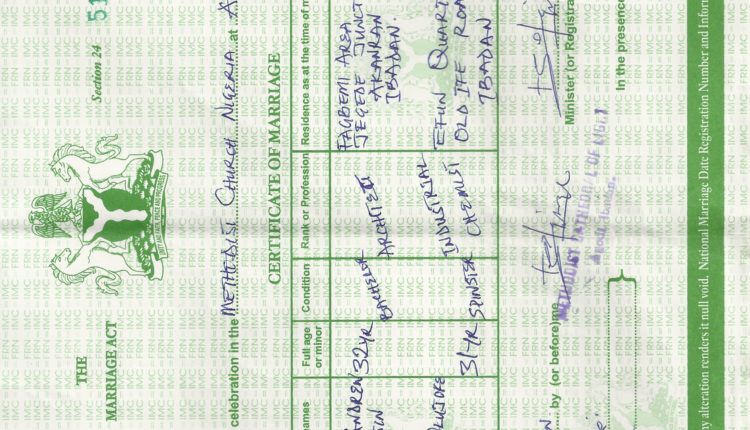 THE
MARRIAGE ACT
Section 24
51
celebration in the METHODIST CHURCH NIGERIA at A
CERTIFICATE OF MARRIAGE
names
Full age or minor
Condition
Rank or Profession
Residence as at the time of m
ANDREW
32YR
BACHELOR
ARCHITECT
FAGBEMI AREA
JEGEDE JUNCT
AKANRAN
IBADAN.
31YR
SPINSTER
INDUSTRIAL
CHEMIST
EFUN QUART
OLD IFE ROA
IBADAN
by (or before) me
METHODIST CATHEDRAL
Minister (or Registra
In the presence
ny alteration renders it null void. National Marriage Date Registration Number and Inform